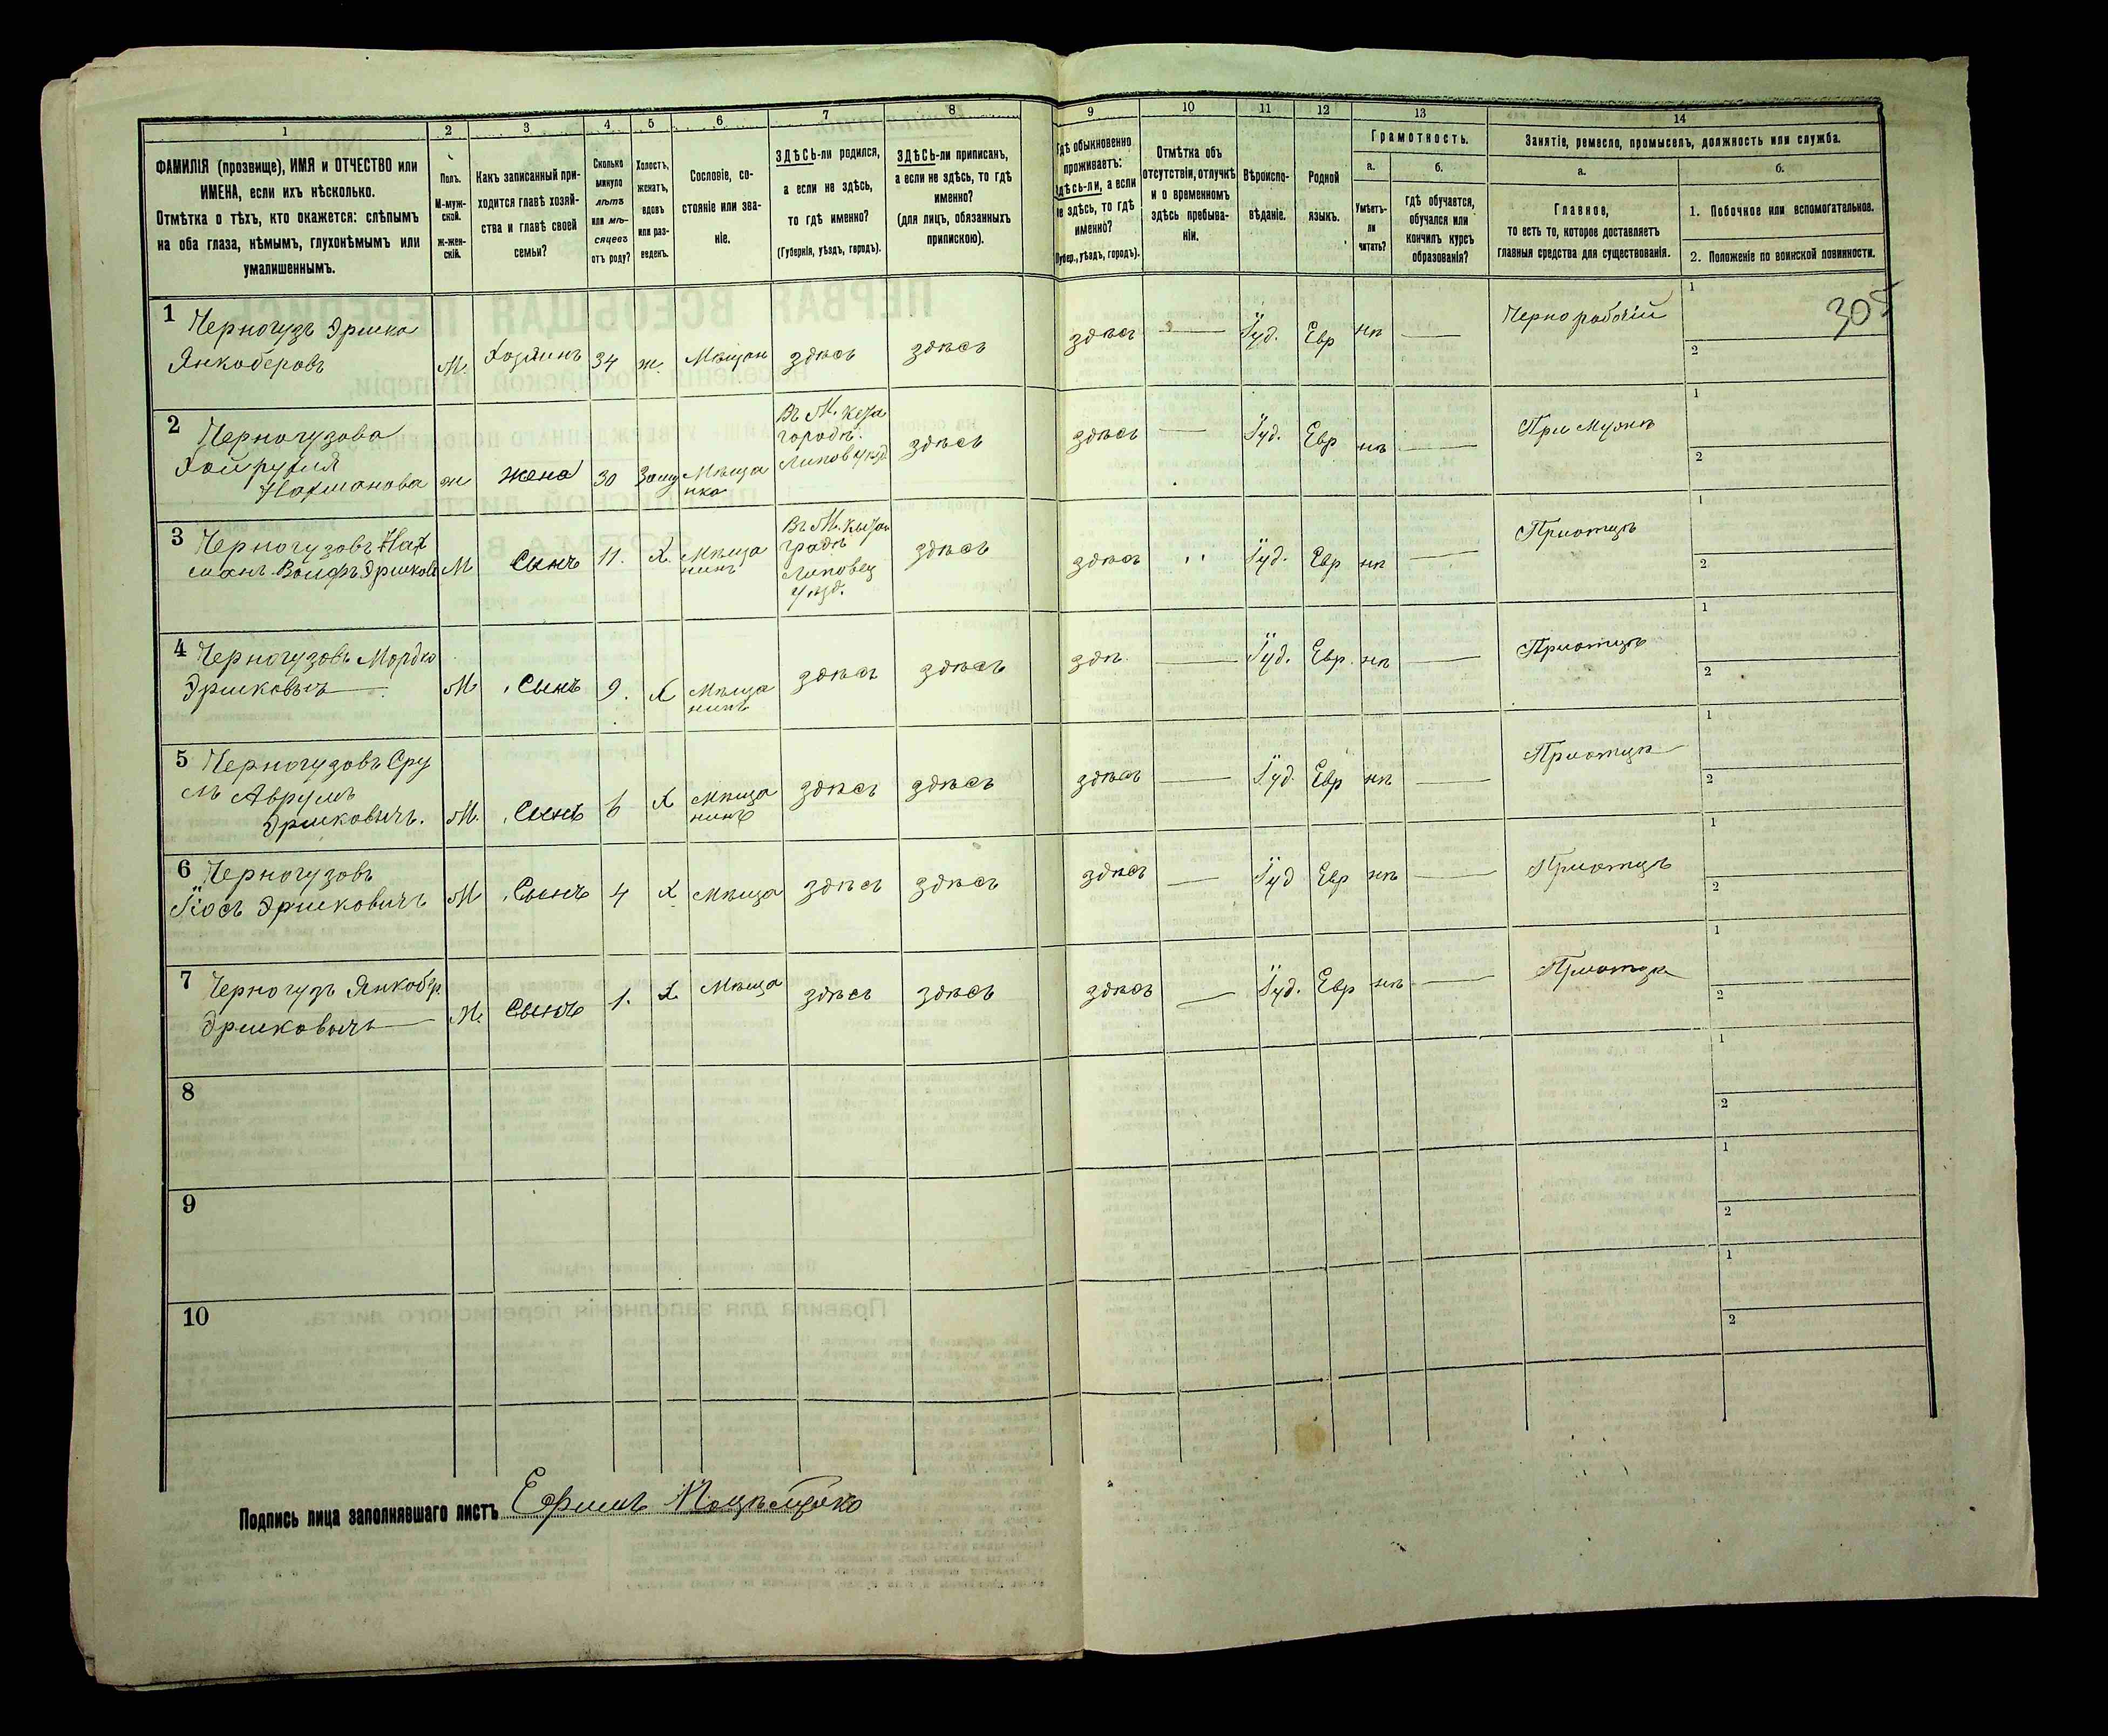 1 2 3 4 5 6 7 8 9 10 11 12 13 14
ФАМИЛІЯ (прозвище), ИМЯ и ОТЧЕСТВО или
ИМЕНА, если ихъ нѣсколько.
Отмѣтка о тѣхъ, кто окажется: слѣпымъ
на оба глаза, нѣмымъ, глухонѣмымъ или
умалишеннымъ.
Полъ.
М-муж-
ской.
Ж-жен-
скій.
Какъ записанный при-
ходится главѣ хозяй-
ства и главѣ своей
семьи?
Сколько
минуло
лѣтъ
или мѣ-
сяцевъ
отъ роду?
Холостъ,
женатъ,
вдовъ
или раз-
веденъ.
Сословіе, со-
стояніе или зва-
ніе.
ЗДѢСЬ-ли родился,
а если не здѣсь,
то гдѣ именно?
(Губернія, уѣздъ, городъ).
ЗДѢСЬ-ли приписанъ,
а если не здѣсь, то гдѣ
именно?
(для лицъ, обязанныхъ
припискою).
Гдѣ обыкновенно
проживаетъ:
здѣсь-ли, а если
не здѣсь, то гдѣ
именно?
(Губер., уѣздъ, городъ).
Отмѣтка объ
отсутствіи, отлучкѣ
и о временномъ
здѣсь пребыва-
ніи.
Вѣроиспо-
вѣданіе.
Родной
языкъ.
Грамотность.
а.
Умѣетъ-
ли
читать?
б.
гдѣ обучается,
обучался или
кончилъ курсъ
образованія?
Занятіе, ремесло, промыселъ, должность или служба.
а.
Главное,
то есть то, которое доставляетъ
главныя средства для существованія.
б.
1. Побочное или вспомогательное.
2. Положеніе по воинской повинности.
305
1 Черногузъ Эршко
Янкоберовъ М. Хозяинъ 34 ж. Мѣщан здѣсь здѣсь здѣсь — Іуд. Евр нѣ — Чернорабочій 1
2
2 Черногузова
Нахманова ж жена 30 Заму Мѣща
нка
Въ М.
городѣ.
Липов уѣзд
здѣсь здѣсь — Іуд. Евр нѣ — При Мужѣ 1
2
3 Черногузовъ Нах
манъ Вольфъ Эршков М Сынъ 11. Х. Мѣща
нинъ
Въ М.
градѣ
Липовец
уѣзд.
здѣсь здѣсь Іуд. Евр нѣ — Приотцѣ 1
2
4 Черногузовъ Мордко
Эршковичъ — М. Сынъ 9. Х Мѣща
нинъ здѣсь здѣсь здѣ. — Іуд. Евр. нѣ — Приотцѣ 1
2
5 Черногузовъ Сру
ль Аврумъ
Эршковичъ. М. Сынъ 6 Х Мѣща
нинъ здѣсь здѣсь здѣсь — Іуд. Евр нѣ — Приотцѣ 1
2
6 Черногузовъ
Іось Эршковичъ М Сынъ 4 Х Мѣща здѣсь здѣсь здѣсь — Іуд Евр нѣ — Приотцѣ 1
2
7 Черногузъ Янкобр
Эршковичъ — М. Сынъ 1. Х Мѣща здѣсь здѣсь здѣсь — Іуд. Евр нѣ — Приотцѣ 1
2
8 1
2
9 1
2
10 1
2
Подпись лица заполнявшаго листъ Ефимъ